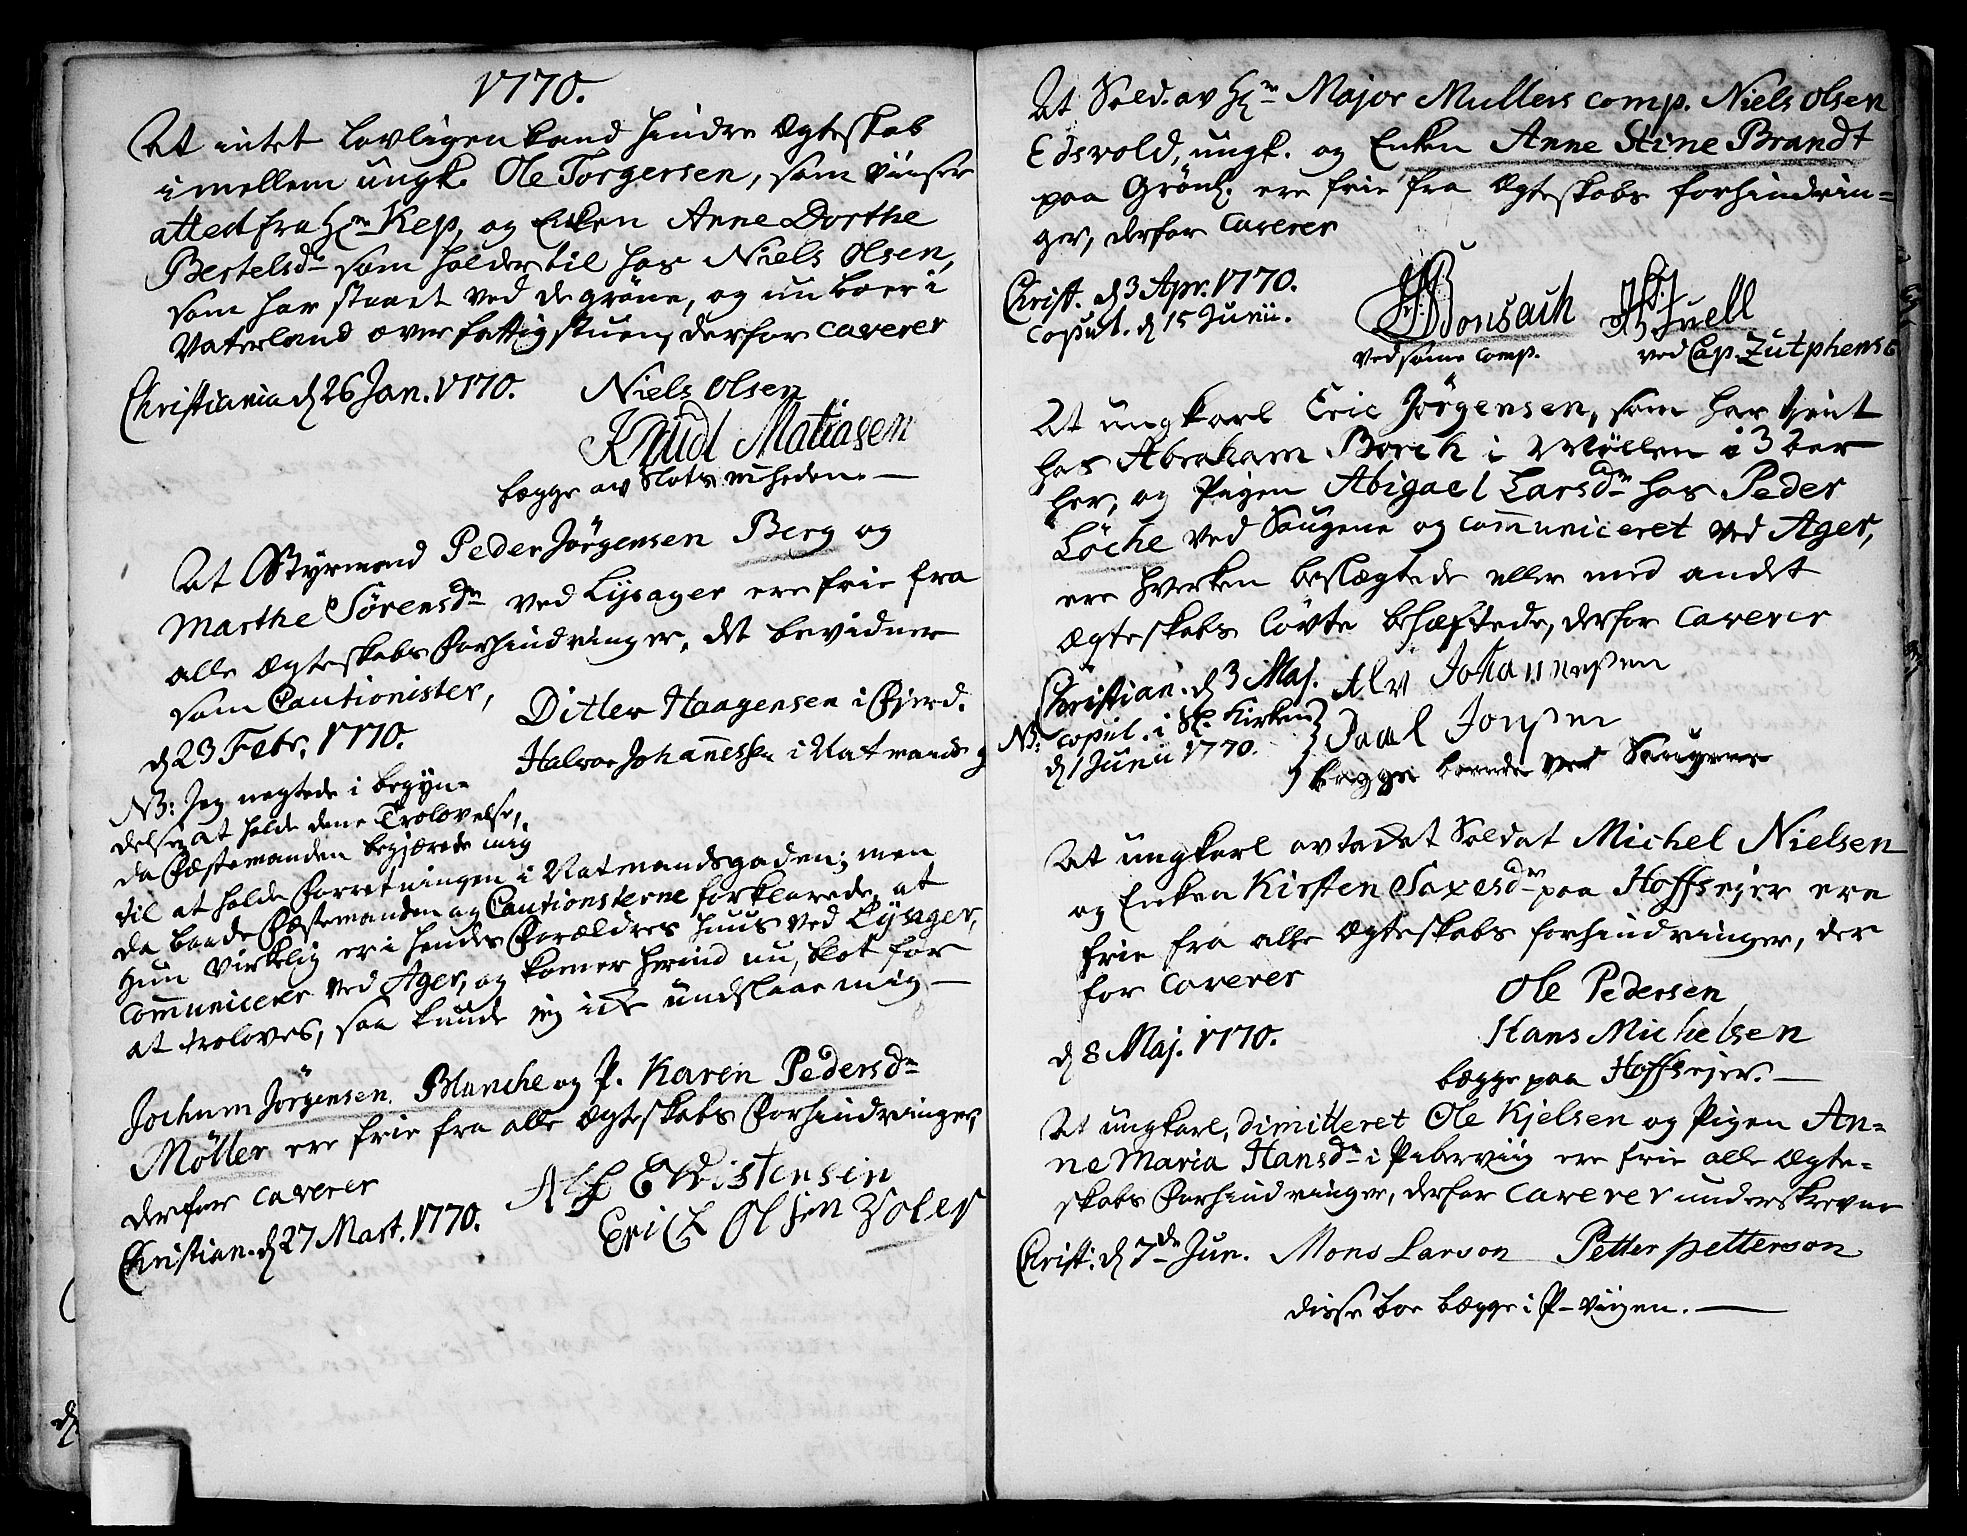 1770.
At intet lovligen kand hindre Ægteskab
imellem ungk. Ole Torgersen, som viiser
attest fra Hr. Kep, og Enken Anne Dorthe
Bertelsdr som holder til hos Niels Olsen,
som har staaet ved de gröne, og nu boer i
Vaterland over fattigstuen, derfor caverer
Christiania d 26 Jan. 1770. Niels Olsen
Knud Matiasen
begge av Slots
At Styrmand Peder Jörgensen Berg og
Marthe Sörensdr ved Lysager ere frie fra
alle Ægteskabs Forhindringer, det bevidner
som Cautionister,
Ditlev Haagensen i Fjerd.
d 23 Febr. 1770.
Halvor Johannessen i Natmands g
NB: Jeg negtede i begyn-
delsen at holde denne Trolovelse,
da Fæstemanden begjærede mig
til at holde Forretningen i Natmandsgaden; men
da baade Fæstemanden og Cautionisterne forklarede, at
hun virkelig er i hendes Forældres Huus ved Lysager,
communicerer ved Ager, og komer herind nu, blot for
at troloves, saa kunde jeg icke undslaae mig —
Jochum Jörgensen Blanche og P. Karen Pedersdr
Möller ere frie fra alle Ægteskabs Forhindringer,
derfor caverer
Alf Christensen
Christian. d 27 Mart. 1770. Erich Olsen Zoler
At Sold. av Hr. Major Mullers comp. Niels Olsen
Edsvold, ungk. og Enken Anne Stine Brandt
paa Grönl. ere frie fra Ægteskabs forhindrin-
ger, derfor caverer
Christ. d 3 Apr. 1770.
Copul. d 15 Junii. Juell
ved samme comp. ved Cap. Zutphens C
At ungkarl Eric Jörgensen, som har tient
hos Abraham Borch i Möllen i 3 aar
her, og Pigen Abigael Larsdr hos Peder
Löche ved Saugene og communiceret ved Ager,
ere hverken beslægtede eller med andet
Ægteskabs lövte behæftede, derfor caverer
Christian. d 3 Maj. Alv Johannesen
NB: copul. i Sl. Kirken Paal Jonsen
d 1 Junii 1770. begge boende ved Saugene
At ungkarl avtadet Soldat Michel Nielsen
og Enken Kirsten Saxesdr paa Hoffsejer ere
frie fra alle Ægteskabs forhindringer, der
for caverer
Ole Pedersen
d 8 Maj. 1770. Hans Michelsen
begge paa Hoffsejer. —
At ungkarl, dimitteret Ole Kjelsen og Pigen An-
ne Maria Hansdr i Piberviig ere frie alle Ægte-
skabs Forhindringer, derfor caverer underskrevne
Christ. d 7de Jun. Mons Larson Petter petterson
disse boe begge i P-viigen. —